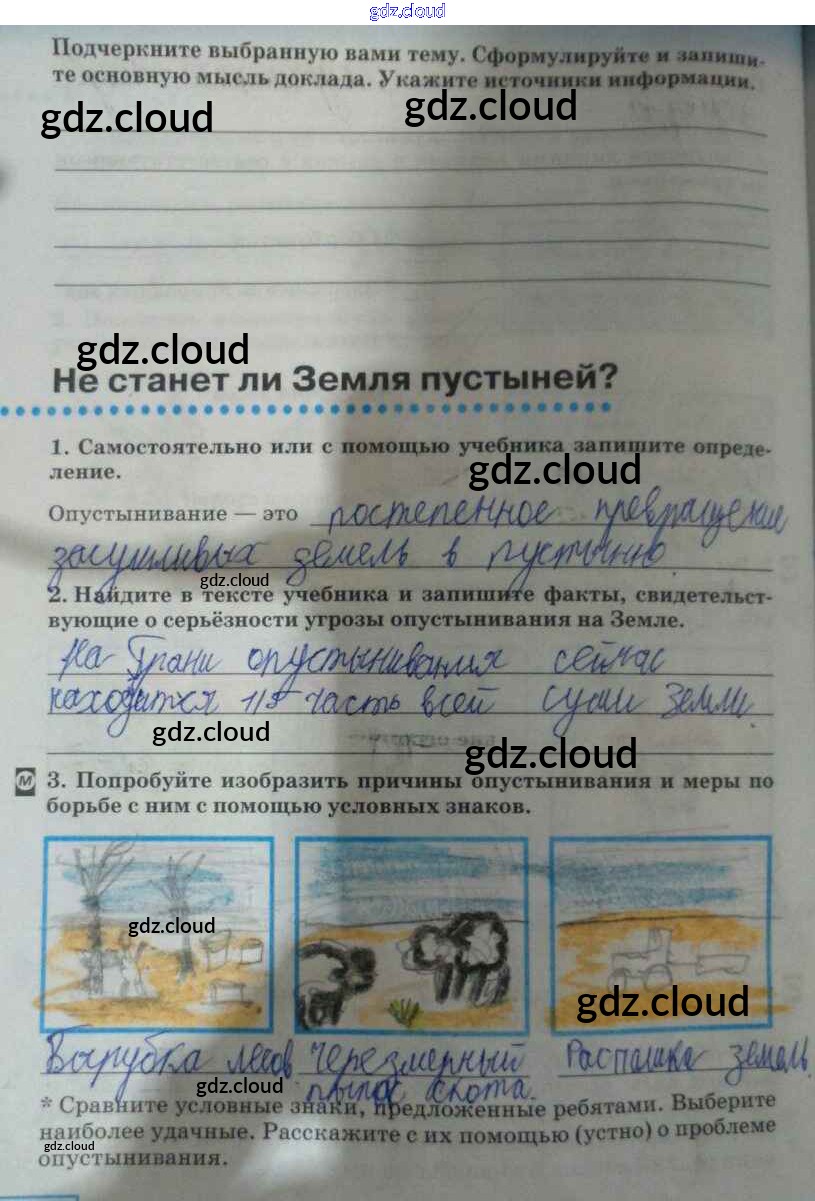 gdz.cloud
Подчеркните выбранную вами тему. Сформулируйте и запиши-
те основную мысль доклада. Укажите источники информации.
gdz.cloud
gdz.cloud
gdz.cloud
Не станет ли Земля пустыней?
1. Самостоятельно или с помощью учебника запишите опреде-
ление.
gdz.cloud
Опустынивание — это постепенное превращение
засушливых земель в пустынню
gdz.cloud
2. Найдите в тексте учебника и запишите факты, свидетельст-
вующие о серьёзности угрозы опустынивания на Земле.
На грани опустынивания сейчас
находится 1/5 часть всей суши Земли.
gdz.cloud
gdz.cloud
М
3. Попробуйте изобразить причины опустынивания и меры по
борьбе с ним с помощью условных знаков.
gdz.cloud
gdz.cloud
Вырубка лесов
Черезмерный
скота.
Распашка земель
gdz.cloud
* Сравните условные знаки, предложенные ребятами. Выберите
наиболее удачные. Расскажите с их помощью (устно) о проблеме
gdz.cloud
опустынивания.